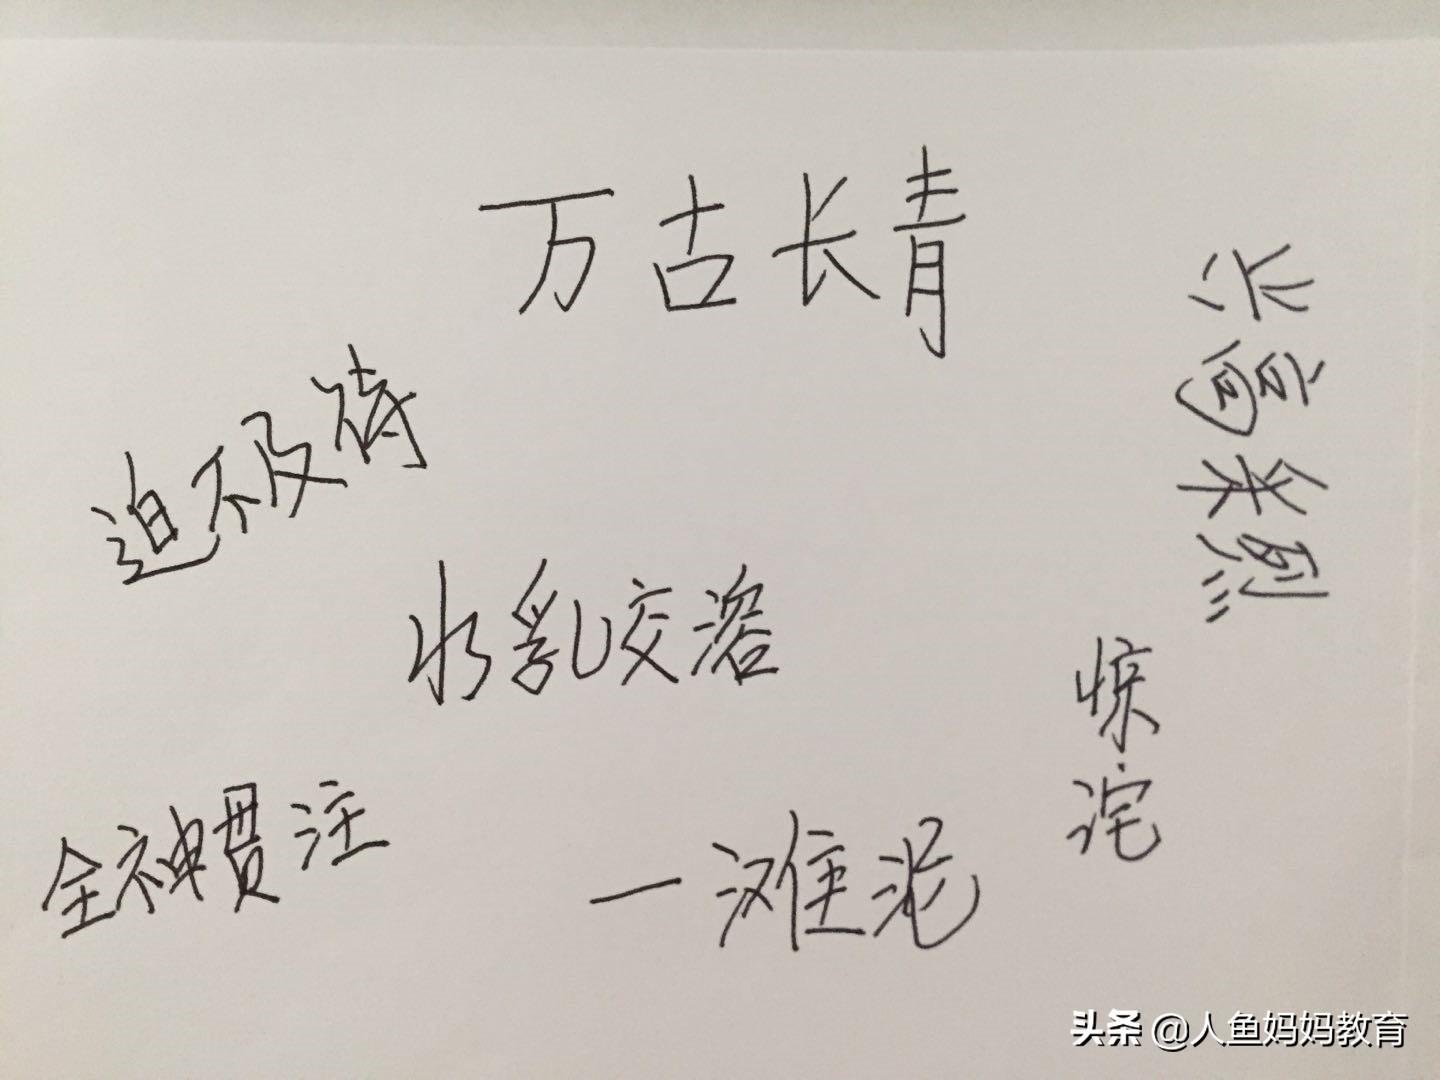 万古长青
兴高采烈
迫不及待
水乳交溶
惊诧
全神贯注
一滩泥
头条 @人鱼妈妈教育